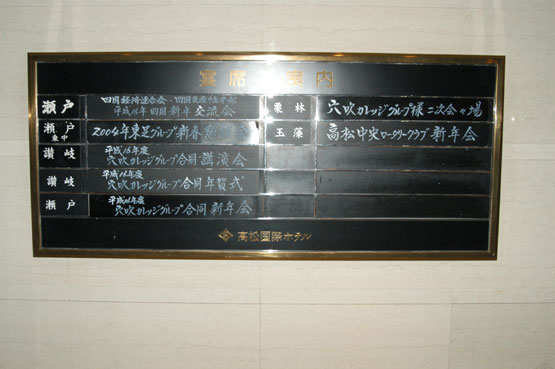 宴席ご案内
瀬戸
四国経済連合会・四国生産性本部
平成16年四国新年交流会
瀬戸
東中
2004年東芝グループ新春
讃岐
平成16年度
穴吹カレッジグループ合同講演会
讃岐
平成16年度
穴吹カレッジグループ合同年賀式
瀬戸
平成16年度
穴吹カレッジグループ合同新年会
栗林
穴吹カレッジグループ様二次会会場
玉藻
高松中央ロータリークラブ新年会
高松国際ホテル